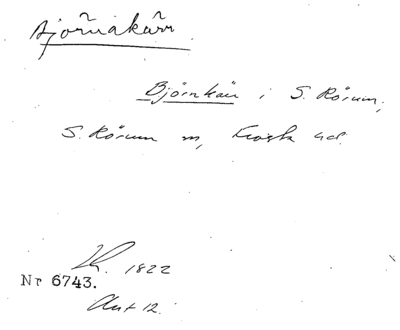 Björnakärr
Björnkärr i S. Rörum,
S. Rörum sn, Frosta hd.
Kt. 1822
Nr 6743.
Akt 12.